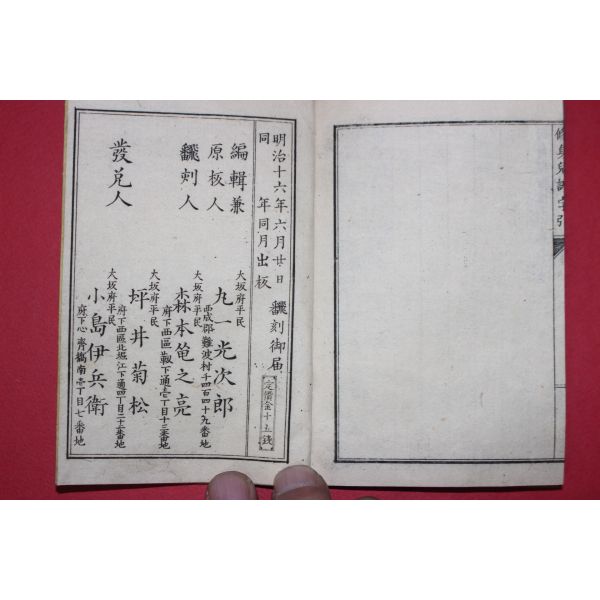 修身兒訓字引
明治十六年六月廿日 飜刻御届
同 年同月出板
定價金十五錢
編輯兼
原板人
大坂府平民
丸一光次郎
西成郡難波村千四百四十九番地
飜刻人
大坂府平民
森本
之亮
府下西區靱下通壱丁目十三番地
大坂府平民
坪井菊松
府下西區北堀江下通四丁目二十二番地
發兌人
大坂府平民
小島伊兵衛
府下心齊橋南壱丁目七番地